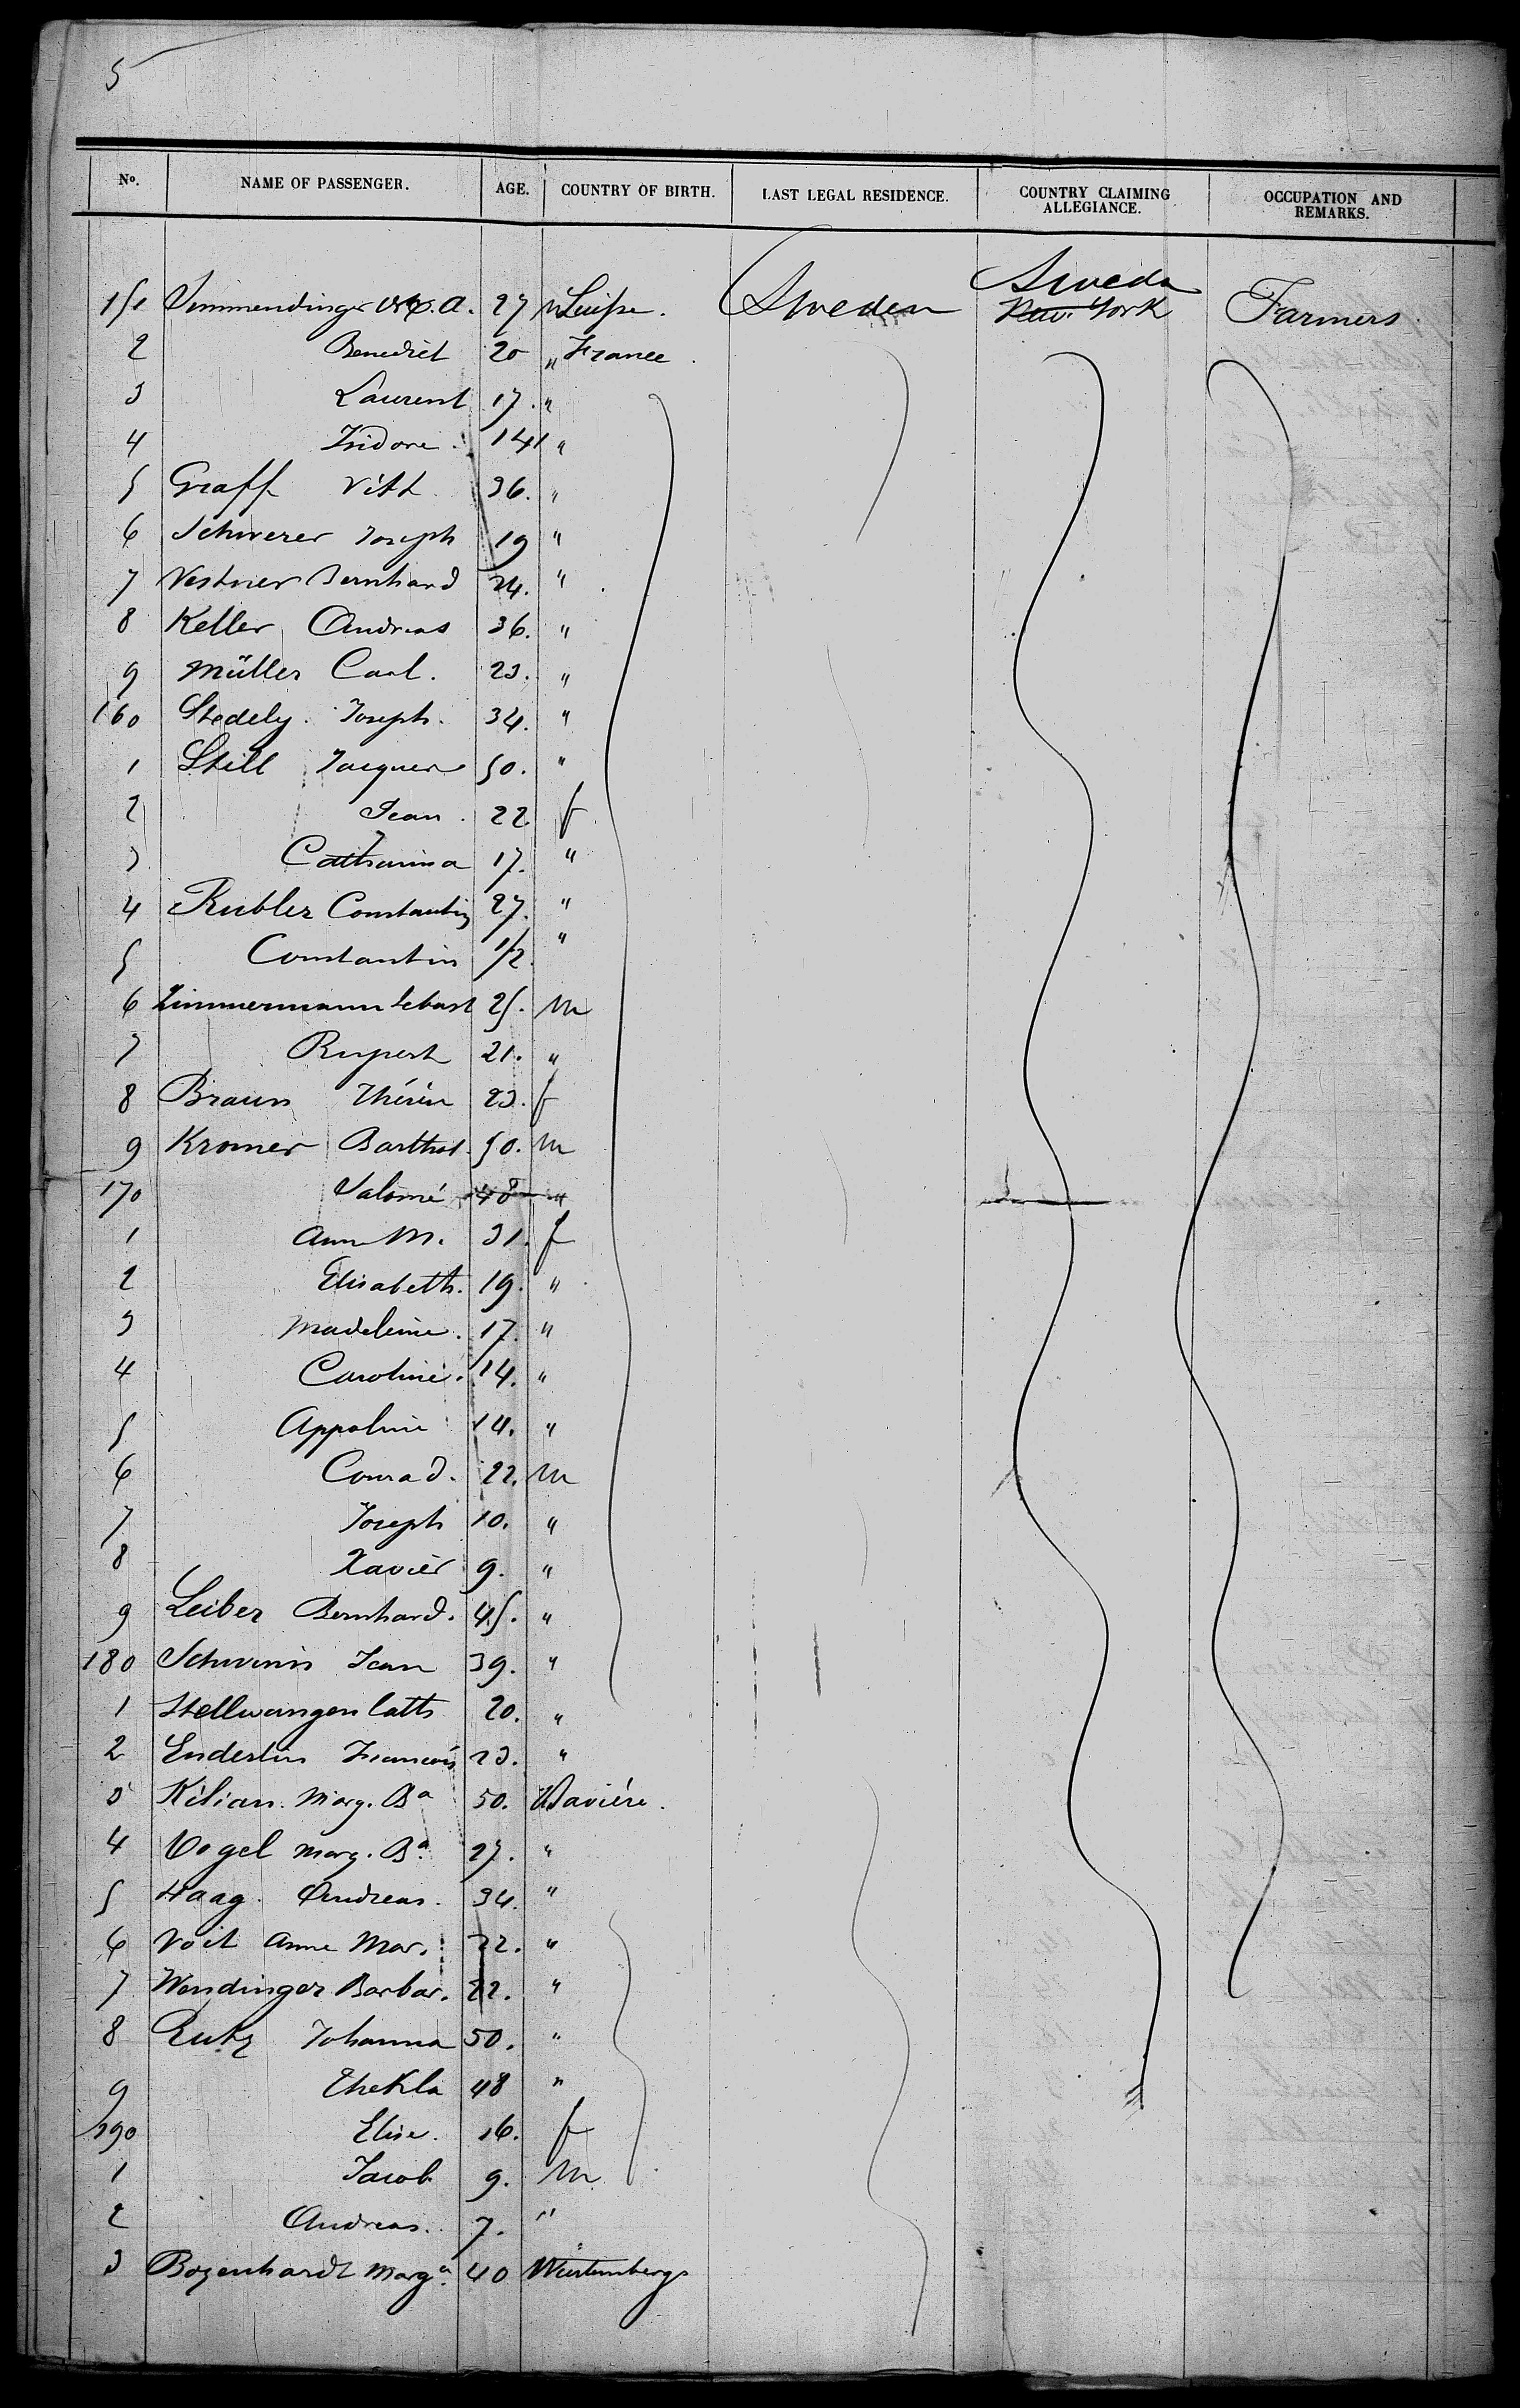 5
No. NAME OF PASSENGER. AGE. COUNTRY OF BIRTH. LAST LEGAL RESIDENCE. COUNTRY CLAIMING ALLEGIANCE. OCCUPATION AND REMARKS.
Sweden
151 A. 27 Sweden New York Farmers
2 Benedict 20 " France
3 Laurent 17. "
4 Isidore 14 "
5 Graff Vitt 36. "
6 Schwerer Joseph 19 "
7 Vestner Bernhard 24. "
8 Keller Andreas 36. "
9 Müller Carl. 23. "
160 Stedely. Joseph. 34. "
1 Still Jacques 50. "
2 Jean. 22 f
3 Catharina 17. "
4 Kubler Constantin 27. "
5 Constantin 1/2 "
6 Zimmermann Sebast 25. m
7 Rupert 21. "
8 Braun Thérèse 23. f
9 Kromer Barthol. 50. m
170 Salomé 48 "
1 Ann M. 31. f
2 Elisabeth. 19. "
3 Madeleine. 17. "
4 Caroline. 14. "
5 Appoline 14. "
6 Conrad. 22. m
7 Joseph 10. "
8 Xavier 9. "
9 Leiber Bernhard. 45. "
180 Jean 39. "
1 Stellwangen Cath 20. "
2 Enderlin François 23. "
3 Kilian. Marg. Ba 50. Bavière.
4 Vogel Marg. Ba. 27. "
5 Haag. Andreas. 34. "
6 Voit Anne Mar. 22. "
7 Wendinger Barbar. 22. "
8 Rutz Johanna 50. "
9 Thekla 48 "
190 Elise. 16. f
1 Jacob 9. m
2 Andreas. 7. "
3 Bozenhardt Marga. 40 Wurtemberg